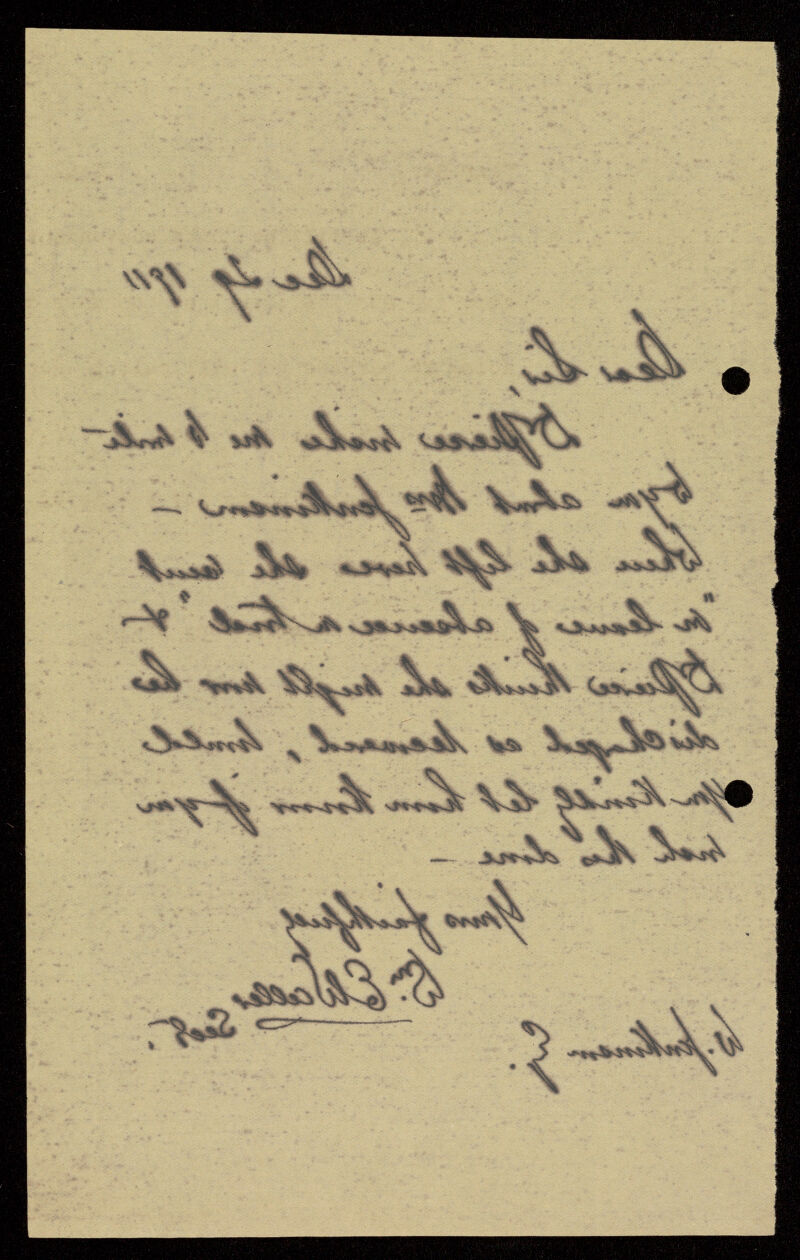 Dec 29 1911
Dear Sir,
Dr Pierce wishes me to write
to you about Mrs Jenkinson —
When she left here she went
"on leave of absence on trial" &
Dr Pierce thinks she might now be
discharged as recovered, would
you kindly let him know if you
wish this done —
Yours faithfully
Wm. E Waller
Secy.
W. Jenkinson Esq.